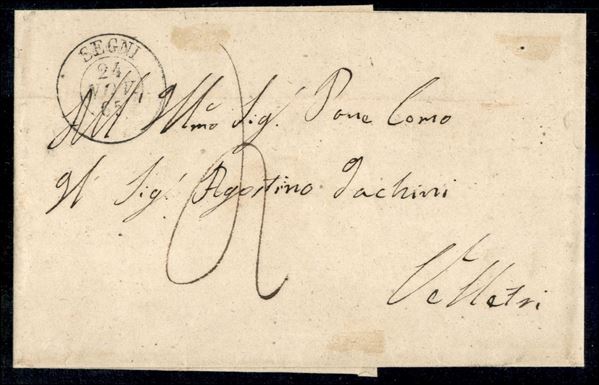 SEGNI
24
NOV
65
All' Illmo Sig.r Pone Como
Il Sig.r Agostino Jachini
Velletri